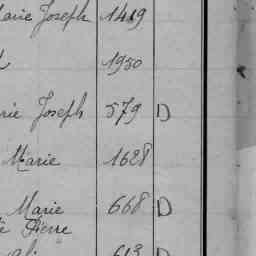 Marie Joseph 1419
1950
Marie Joseph 579 D
Marie 1628
Marie 668 D
Pierre
613 D